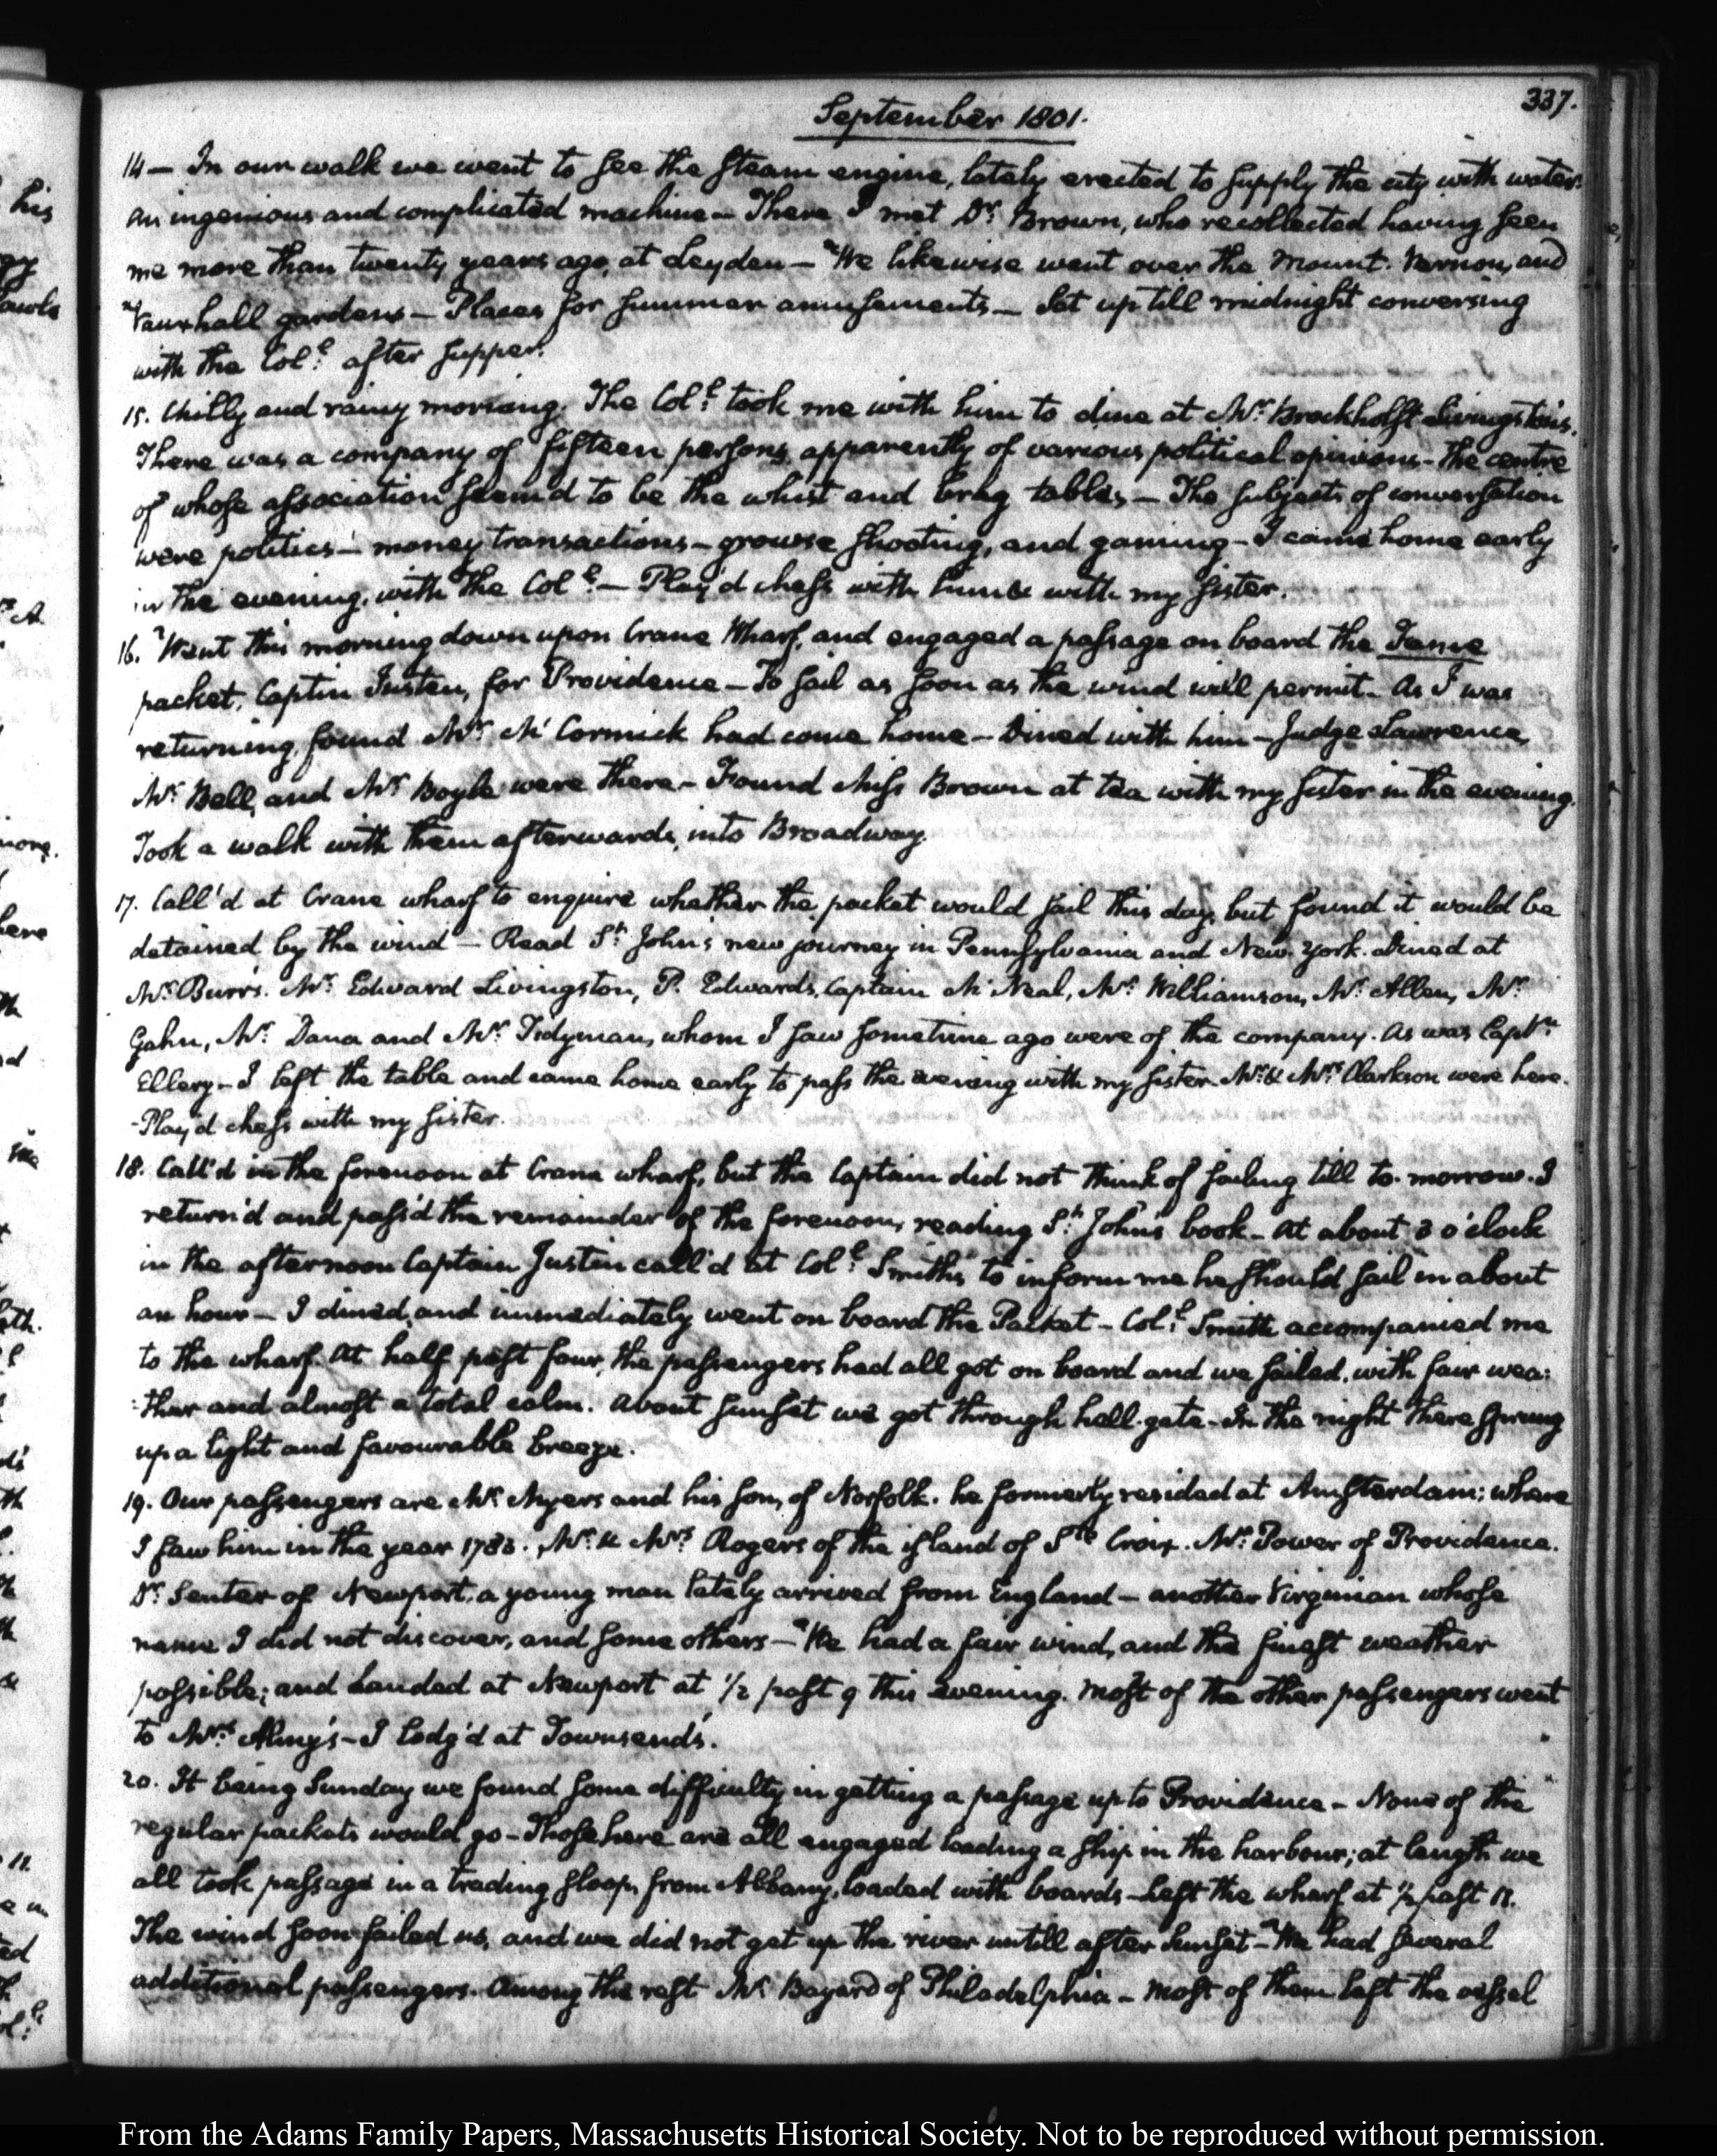 337.
September 1801.
14 — In our walk we went to see the steam engine, lately erected to supply the city with water.
an ingenious and complicated machine — There I met Dr. Brown, who recollected having seen
me more than twenty years ago, at Leyden — We likewise went over the Mount. Vernon, and
Vauxhall gardens — Places for summer amusements — Sat up till midnight conversing
with the Coll. after supper.
15. Chilly and rainy morning. The Coll. took me with him to dine at Mr. Brockholst Livingston's.
There was a company of fifteen persons, apparently of various political opinions - the centre
of whose association seem'd to be the whist and brag tables — The subjects of conversation
were politics — money transactions — growse shooting, and gaming — I came home early
in the evening, with the Coll. — Play'd chess with him & with my sister.
16. Went this morning down upon Crane Wharf, and engaged a passage on board the Fame
packet, Captin Justen, for Providence — To sail as soon as the wind will permit — As I was
returning, found Mr. Mc Cormick had come home — Dined with him — Judge Lawrence,
Mr. Bell, and Mr. Boyle were there — Found Miss Brown at tea with my sister in the evening.
Took a walk with them afterwards, into Broadway.
17. Call'd at Crane wharf to enquire whether the packet would sail this day, but found it would be
detained by the wind — Read St. John's new journey in Pennsylvania and New. York. Dined at
Mr. Burr's. Mr. Edward Livingston, P. Edwards, Captain Mc Neal, Mr. Williamson, Mr. Allen, Mr.
Gahn, Mr. Dana and Mr. Tidyman, whom I saw sometime ago were of the company. As was Captn.
Ellery — I left the table and came home early to pass the evening with my sister. Mr. & Mrs. Clarkson were here.
- Play'd chess with my sister.
18. Call'd in the forenoon at Crane wharf, but the Captain did not think of sailing till to-morrow. I
return'd and pass'd the remainder of the forenoon, reading St. John's book — At about 3 o'clock
in the afternoon Captain Justin call'd at Coll. Smith's to inform me he should sail in about
an hour — I dined, and immediately went on board the Packet — Coll. Smith accompanied me
to the wharf. At half past four, the passengers had all got on board and we sailed, with fair wea:
:ther and almost a total calm. About sunset we got through hell-gate — In the night there sprung
up a light and favourable breeze.
19. Our passengers are Mr. Myers and his son, of Norfolk. he formerly resided at Amsterdam; where
I saw him in the year 1783. Mr. & Mrs. Rogers of the island of Ste. Croix. Mr. Power of Providence.
Dr. Senter of Newport, a young man lately arrived from England — another Virginian whose
name I did not discover, and some others — We had a fair wind, and the finest weather
possible; and Landed at Newport at 1/2 past 9 this evening. Most of the other passengers went
to Mrs. Almy's — I lodg'd at Townsend's.
20. It being Sunday we found some difficulty in getting a passage up to Providence — None of the
regular packets would go — Those here are all engaged loading a ship in the harbour; at length we
all took passage in a trading sloop, from Albany, loaded with boards — Left the wharf at 1/2 past 11.
The wind soon failed us, and we did not get up the river untill after sunset — We had several
additional passengers. Among the rest Mr. Bayard of Philadelphia — Most of them left the vessel
From the Adams Family Papers, Massachusetts Historical Society. Not to be reproduced without permission.